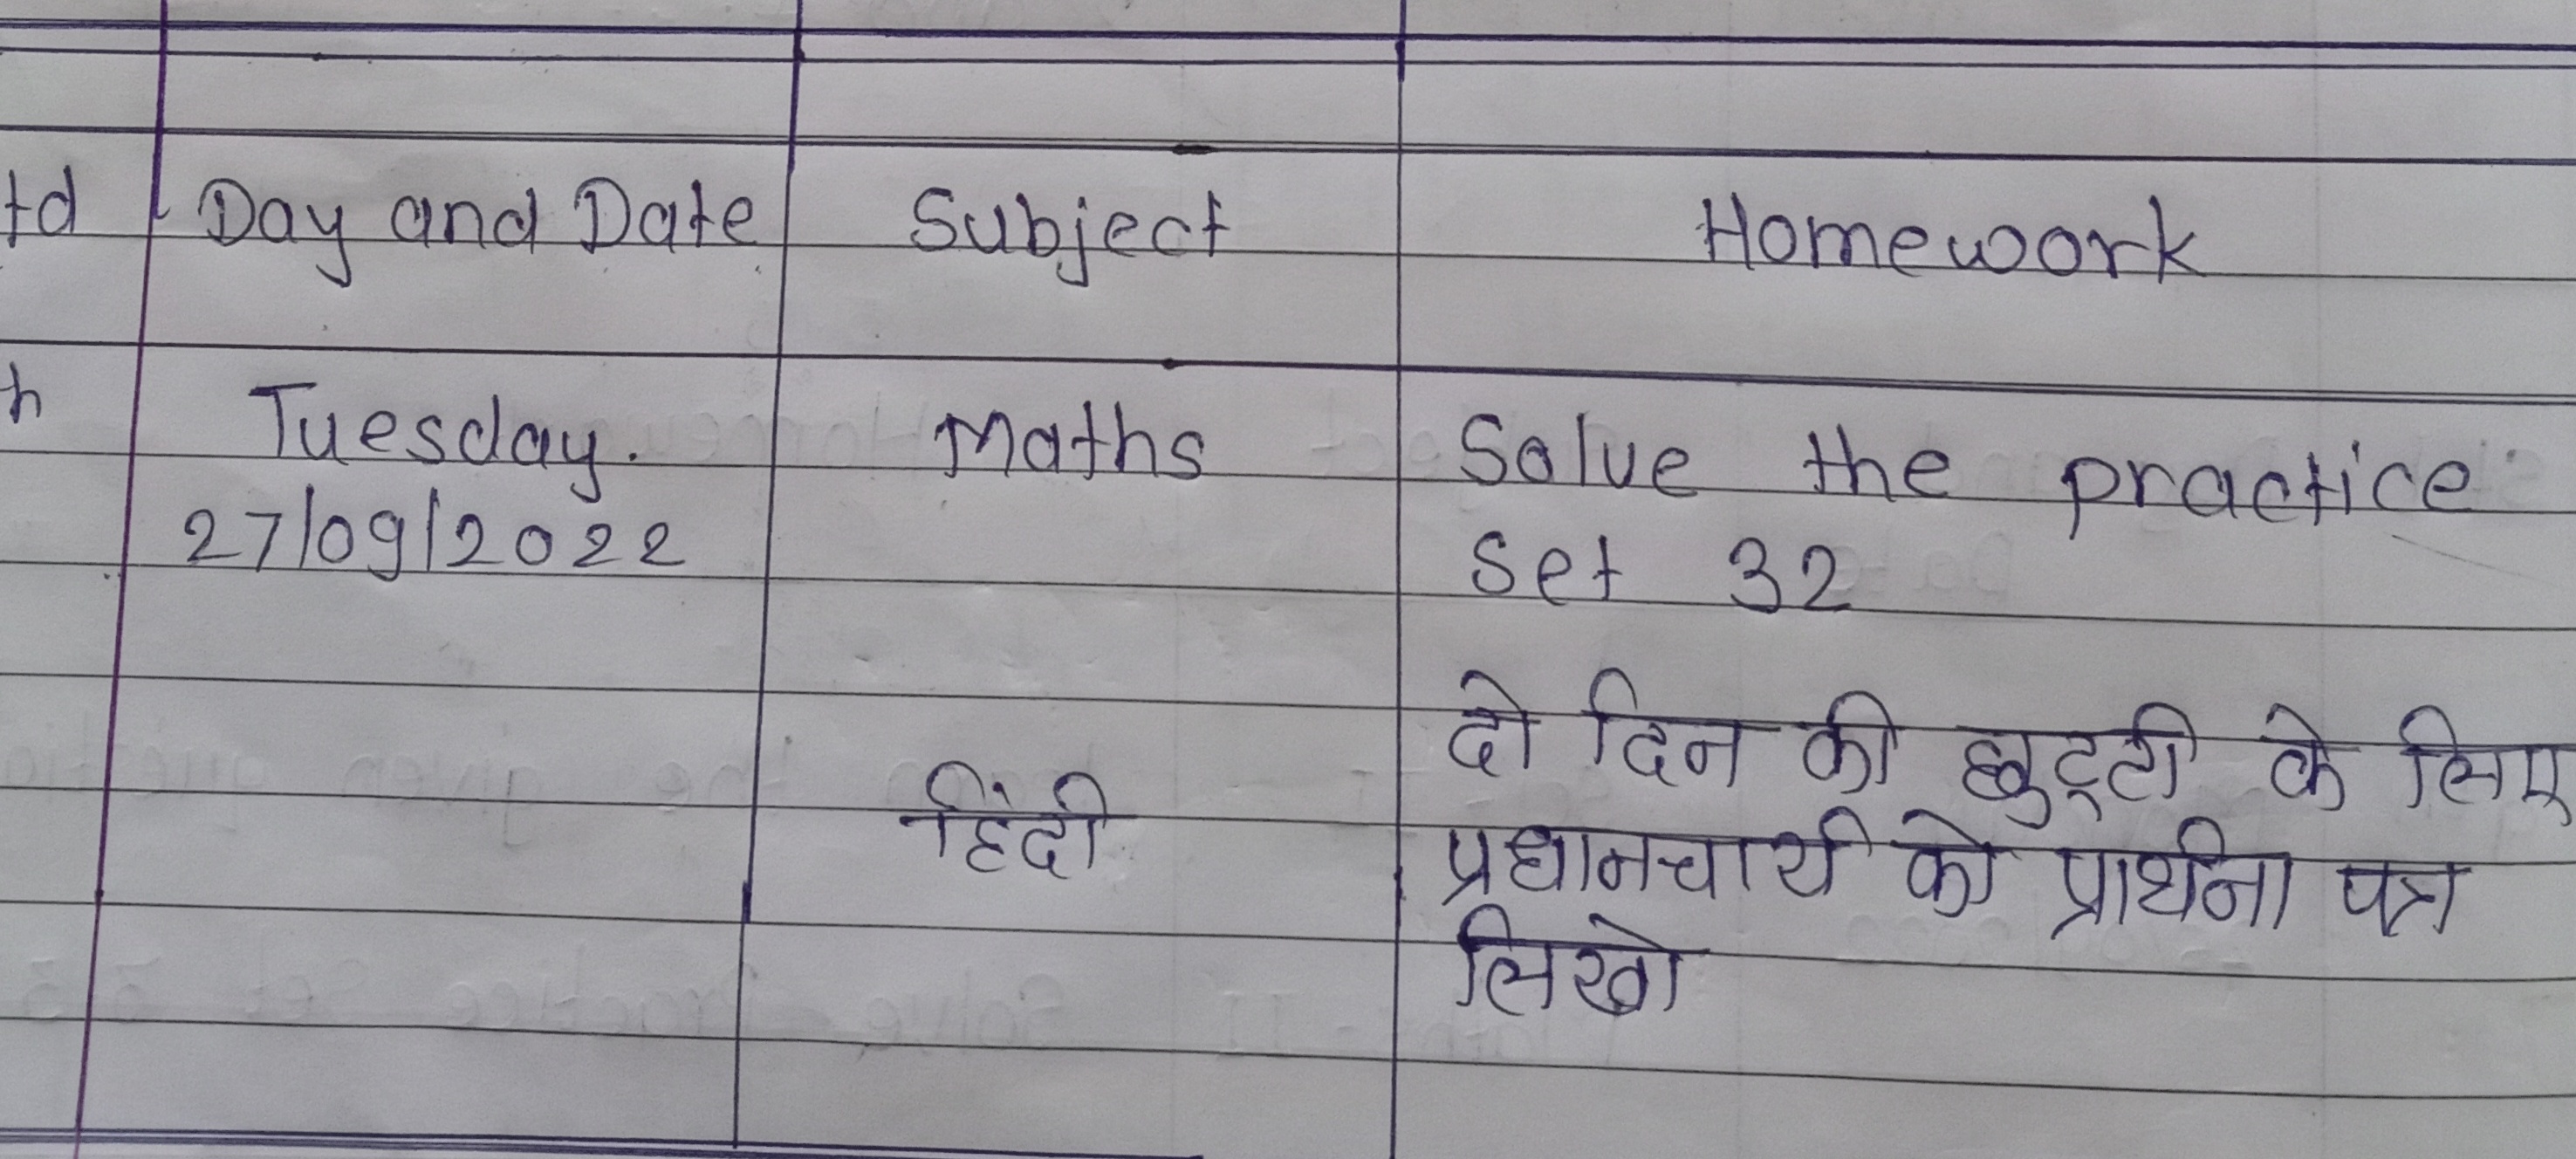 td Day and Date Subject Homework
h Tuesday. Maths Solve the practice
27/09/2022 Set 32
दो दिन की छुट्टी के लिए
हिंदी प्रधानचार्य को प्रार्थना पत्र
लिखो